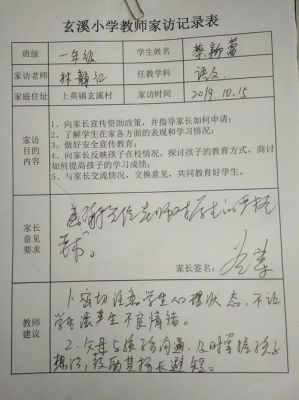 玄溪小学教师家访记录表
班级 一年级 学生姓名 蔡新蕾
家访老师 林静红 任教学科 语文
家庭住址 上英镇玄溪村 家访时间 2019.10.15
家访目的内容
1、向家长宣传资助政策，并指导家长如何申请；
2、了解学生在家各方面的表现和学习情况；
3、做好安全宣传教育；
4、向家长反映孩子在校情况，探讨孩子的教育方式，商讨
如何提高孩子的学习成绩；
5、与家长交流情况，交换意见，共同教育好学生。
家长意见要求
家长签名：
教师建议
1、密切注意学生心理状态，不让
学生滋生不良情绪。
2、父母与孩子沟通，及时掌握孩子
想法，鼓励其扬长避短。